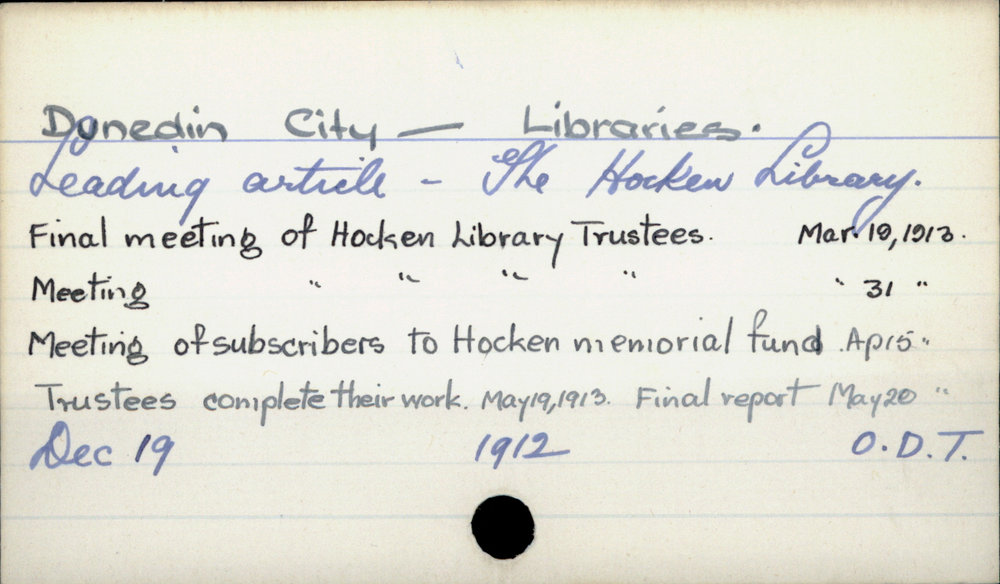 Dunedin City — Libraries.
Leading article - The Hocken Library.
Final meeting of Hocken Library Trustees. Mar. 19, 1913.
Meeting " " " " " 31 "
Meeting of subscribers to Hocken memorial fund Ap 15 "
Trustees complete their work. May 19, 1913. Final report May 20 "
Dec 19 1912 O.D.T.